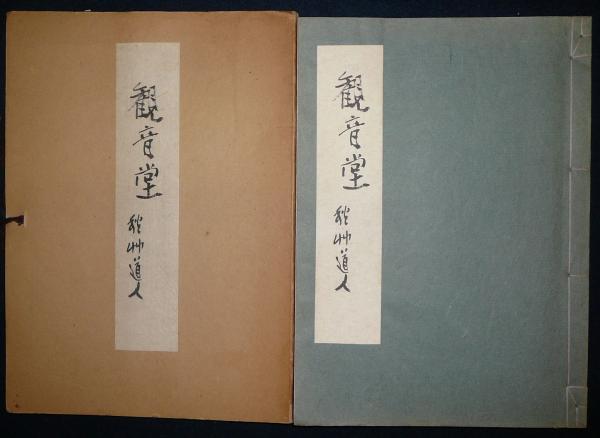 観音堂 秋艸道人
観音堂 秋艸道人